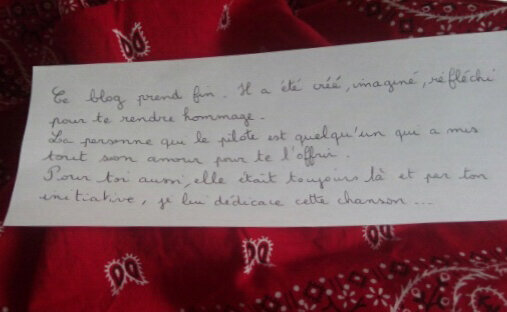 Ce blog prend fin. Il a été créé, imaginé, réfléchi
pour te rendre hommage.
La personne qui le pilote est quelqu'un qui a mis
tout son amour pour te l'offrir.
Pour toi aussi, elle était toujours là et par ton
initiative, je lui dédicace cette chanson...